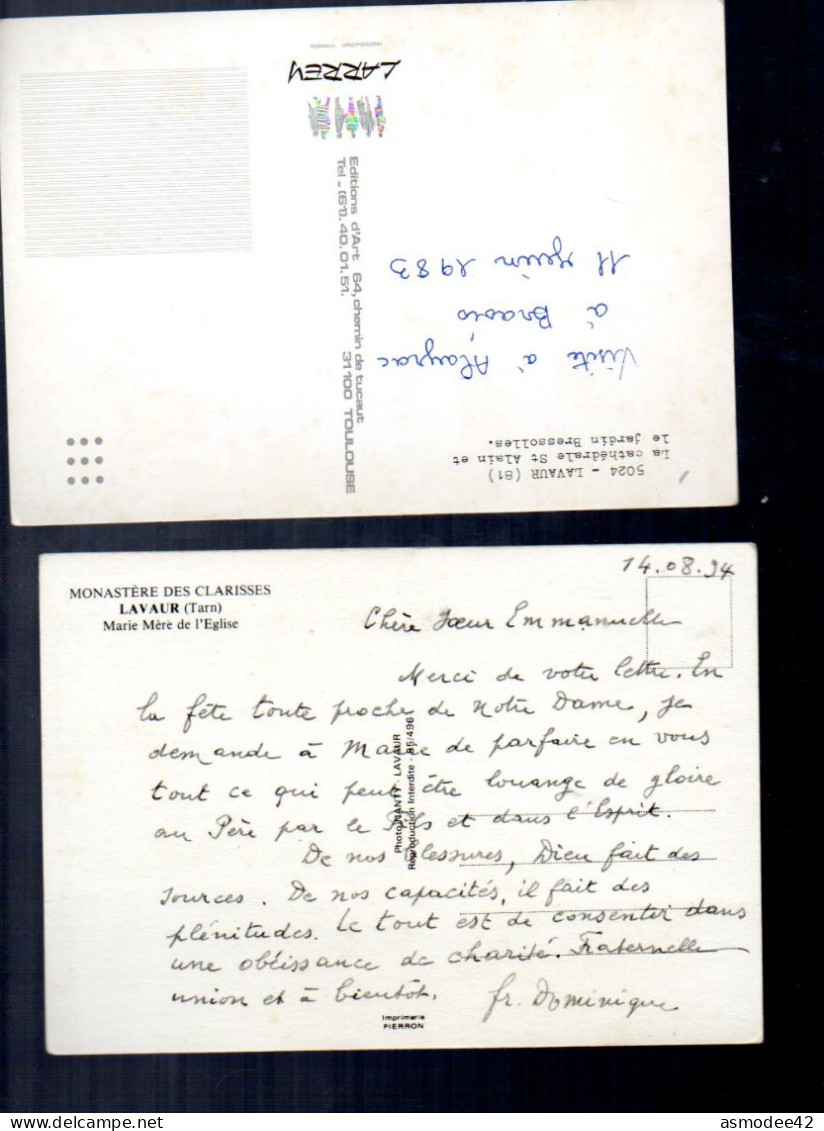 reproduction interdite
LARREY
Editions d'Art 64, chemin de tucaut 31100 TOULOUSE
Tel _ (61). 40.01.51.
5024 - LAVAUR (81)
La cathédrale St Alain et
le jardin Bressolles.
Visite à Alayrac
à Brasis
11 juin 1983
MONASTÈRE DES CLARISSES
LAVAUR (Tarn)
Marie Mère de l'Eglise
14.08.94
Chère Sœur Emmanuelle
Merci de votre lettre. En
la fête toute proche de Notre Dame, je
demande à Marie de parfaire en vous
tout ce qui peut être louange de gloire
au Père par le Fils et dans l'Esprit.
De nos blessures, Dieu fait des
sources. De nos capacités, il fait des
plénitudes. Le tout est de consentir dans
une obéissance de charité. Fraternelle
union et à bientôt. fr. Dominique
Photo NANTY - LAVAUR
Reproduction Interdite - 85/496
Imprimerie
PIERRON
asmodee42